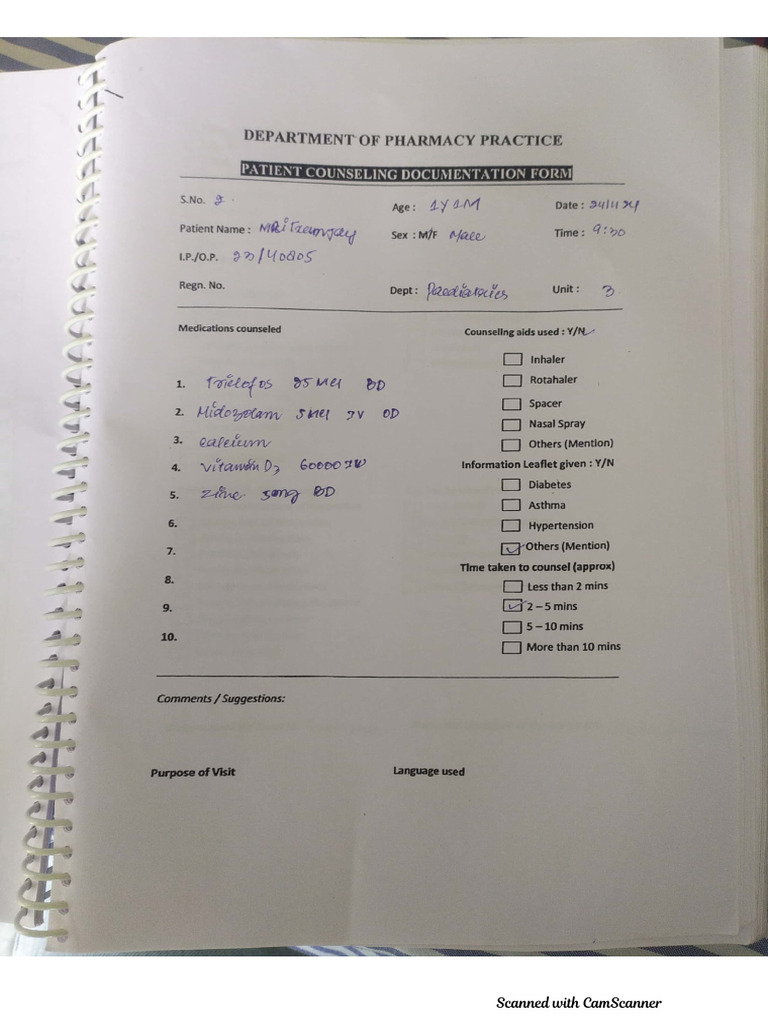 DEPARTMENT OF PHARMACY PRACTICE
PATIENT COUNSELING DOCUMENTATION FORM
S.No. 2. Age : 1Y1M Date : 24/1/24
Patient Name : Sex : M/F Male Time : 9:30
I.P./O.P. 23/40805
Regn. No. Dept : Paediatrics Unit : 3
Medications counseled Counseling aids used : Y/N
Inhaler
1. Triclofos 25 Mcl BD Rotahaler
2. Midozolam 5 Mcl IV OD Spacer
Nasal Spray
3. calcium Others (Mention)
4. vitamin D3 60000 IU Information Leaflet given : Y/N
Diabetes
5. zinc 50mg BD Asthma
6. Hypertension
7. Others (Mention)
Time taken to counsel (approx)
8. Less than 2 mins
9. 2 – 5 mins
5 – 10 mins
10. More than 10 mins
Comments / Suggestions:
Purpose of Visit Language used
Scanned with CamScanner